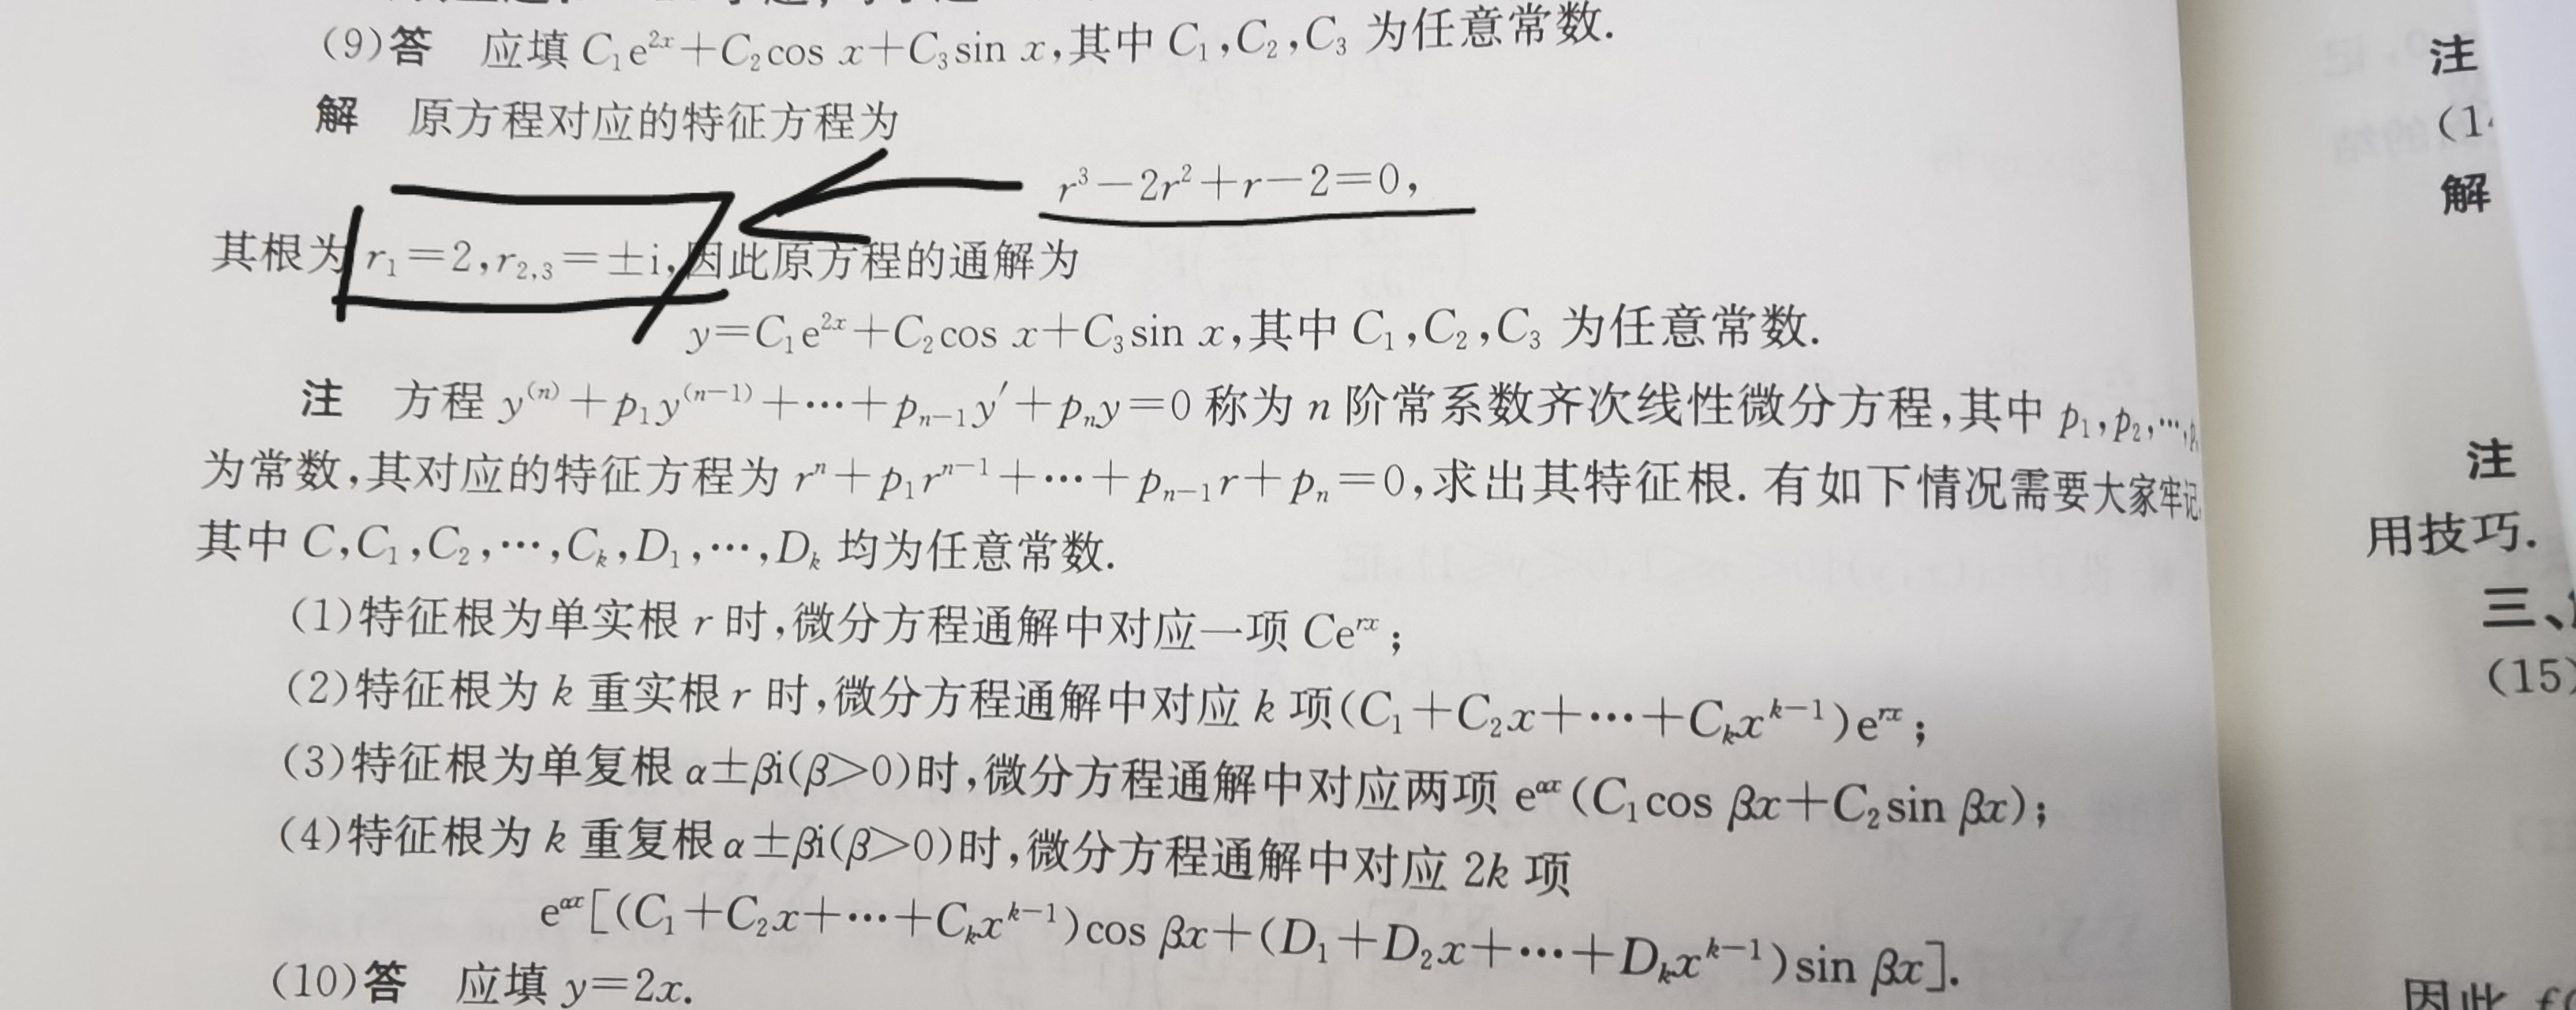 (9)答 应填 C₁e²ˣ+C₂cos x+C₃sin x,其中 C₁,C₂,C₃ 为任意常数.
解 原方程对应的特征方程为
r³-2r²+r-2=0,
其根为 r₁=2,r₂,₃=±i,因此原方程的通解为
y=C₁e²ˣ+C₂cos x+C₃sin x,其中 C₁,C₂,C₃ 为任意常数.
注 方程 y⁽ⁿ⁾+p₁y⁽ⁿ⁻¹⁾+⋯+pₙ₋₁y′+pₙy=0 称为 n 阶常系数齐次线性微分方程,其中 p₁,p₂,⋯,
为常数,其对应的特征方程为 rⁿ+p₁rⁿ⁻¹+⋯+pₙ₋₁r+pₙ=0,求出其特征根. 有如下情况需要大家牢记
其中 C,C₁,C₂,⋯,Cₖ,D₁,⋯,Dₖ 均为任意常数.
(1)特征根为单实根 r 时,微分方程通解中对应一项 Ceʳˣ;
(2)特征根为 k 重实根 r 时,微分方程通解中对应 k 项(C₁+C₂x+⋯+Cₖxᵏ⁻¹)eʳˣ;
(3)特征根为单复根 α±βi(β>0)时,微分方程通解中对应两项 e^{αx}(C₁cos βx+C₂sin βx);
(4)特征根为 k 重复根 α±βi(β>0)时,微分方程通解中对应 2k 项
e^{αx}[(C₁+C₂x+⋯+Cₖxᵏ⁻¹)cos βx+(D₁+D₂x+⋯+Dₖxᵏ⁻¹)sin βx].
(10)答 应填 y=2x.
注
解
注
用技巧.
三、
(15)
因此